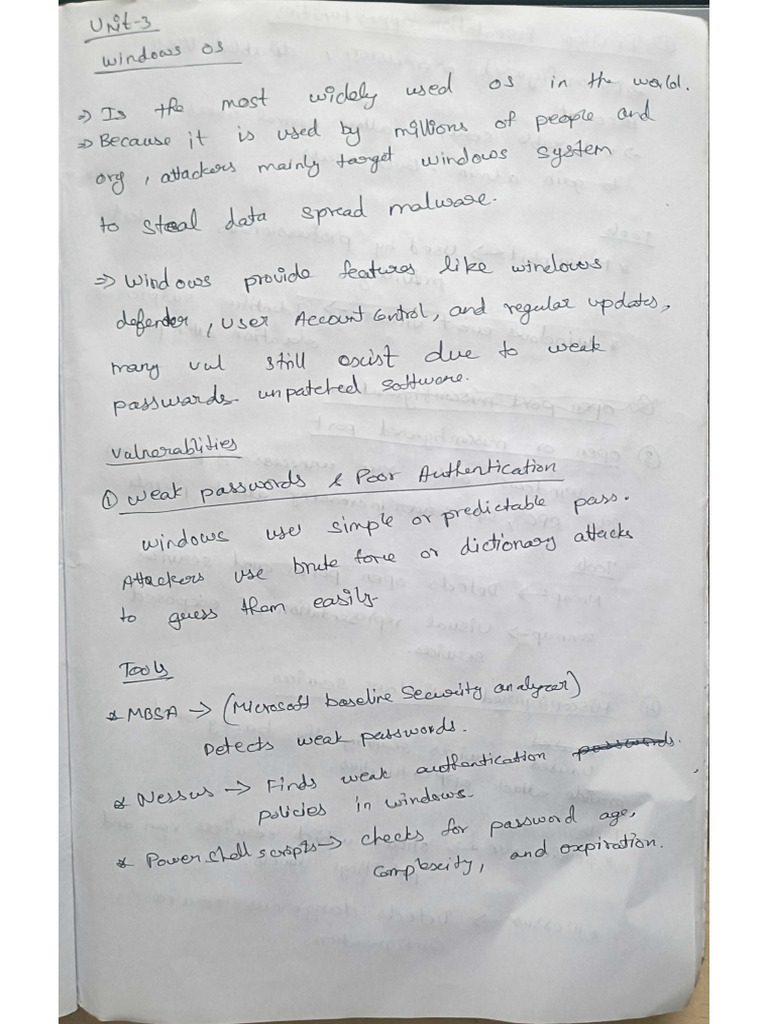 Unit-3
Windows OS
⇒ Is the most widely used OS in the world.
⇒ Because it is used by millions of people and
org, attackers mainly target windows system
to steal data spread malware.
⇒ Windows provide features like windows
defender, user Account Control, and regular updates,
many vul still exist due to weak
passwards unpatched software.
Valnerablities
① Weak passwords & Poor Authentication
windows use simple or predictable pass.
Attackers use brute force or dictionary attacks
to guess them easily.
Tools
* MBSA → (Microsoft baseline Security analyzer)
Detects weak passwords.
* Nessus → Finds weak authentication passwords.
policies in windows.
* Power shell scripts → checks for password age,
complexity, and expiration.